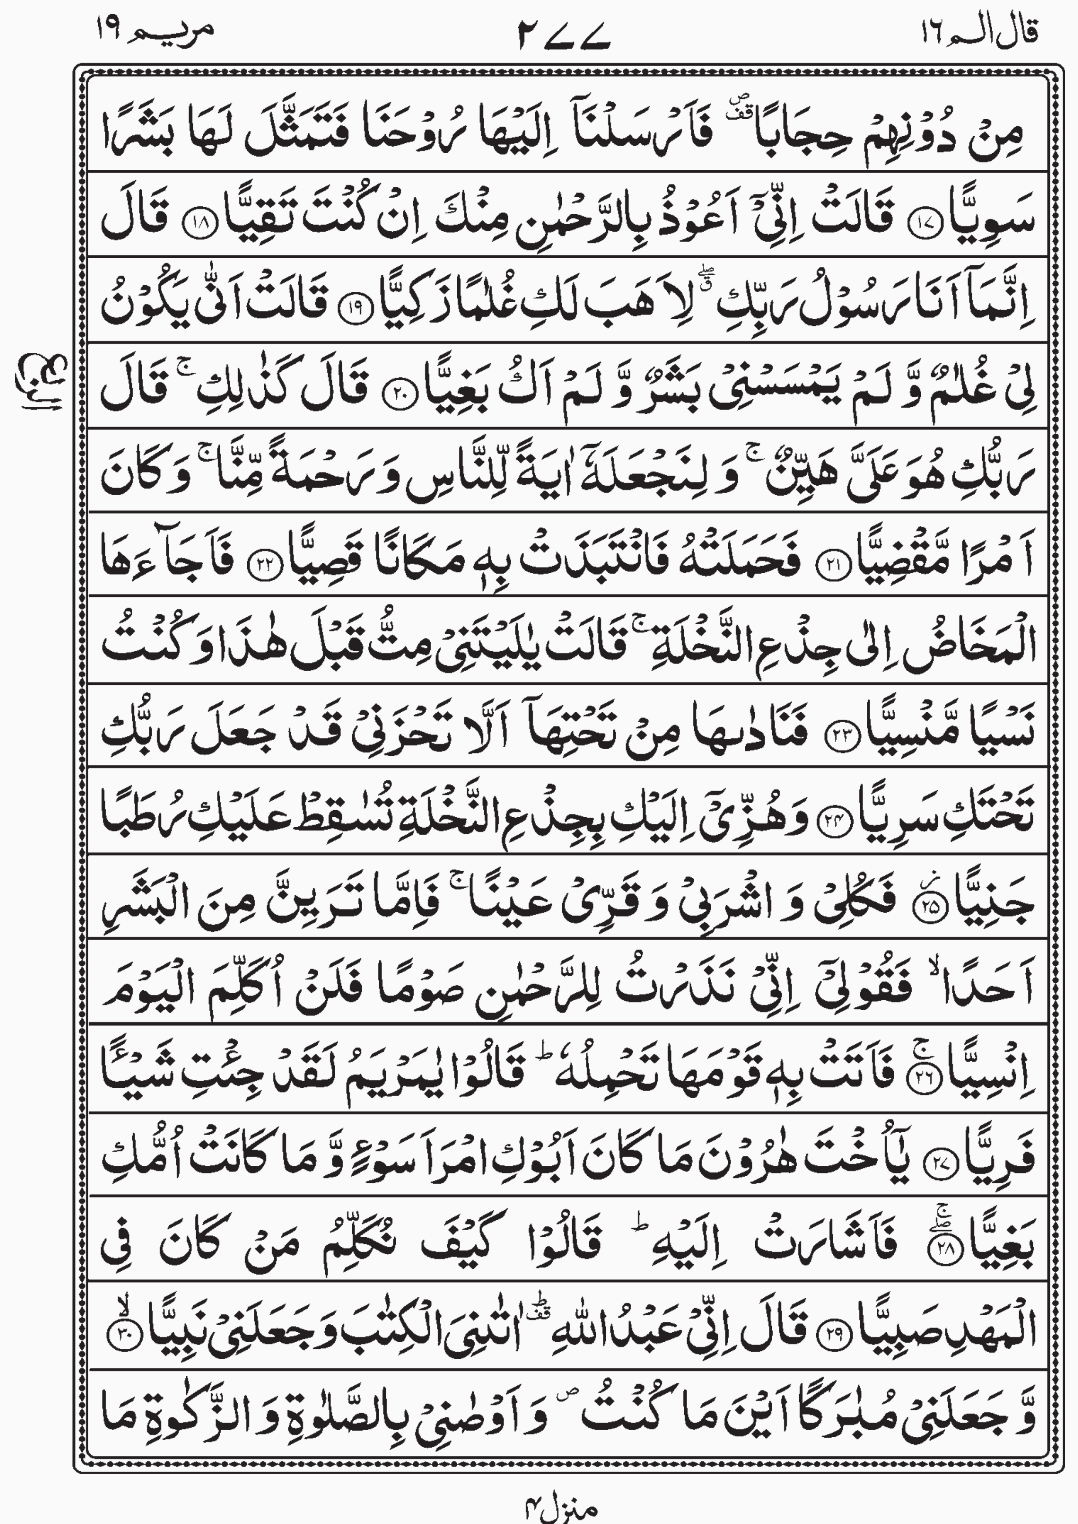 قال الم ١٦ ٢٧٧ مريم ١٩
مِنْ دُوْنِهِمْ حِجَابًا ۪ۖ فَاَرْسَلْنَاۤ اِلَيْهَا رُوْحَنَا فَتَمَثَّلَ لَهَا بَشَرًا
سَوِيًّا ﴿۱۷﴾ قَالَتْ اِنِّيْۤ اَعُوْذُ بِالرَّحْمٰنِ مِنْكَ اِنْ كُنْتَ تَقِيًّا ﴿۱۸﴾ قَالَ
اِنَّمَاۤ اَنَا رَسُوْلُ رَبِّكِ ۖۗ لِاَهَبَ لَكِ غُلٰمًا زَكِيًّا ﴿۱۹﴾ قَالَتْ اَنّٰى يَكُوْنُ
لِيْ غُلٰمٌ وَّ لَمْ يَمْسَسْنِيْ بَشَرٌ وَّ لَمْ اَكُ بَغِيًّا ﴿۲۰﴾ قَالَ كَذٰلِكِ ۚ قَالَ
رَبُّكِ هُوَ عَلَيَّ هَيِّنٌ ۚ وَ لِنَجْعَلَهٗۤ اٰيَةً لِّلنَّاسِ وَ رَحْمَةً مِّنَّا ۚ وَ كَانَ
اَمْرًا مَّقْضِيًّا ﴿۲۱﴾ فَحَمَلَتْهُ فَانْتَبَذَتْ بِهٖ مَكَانًا قَصِيًّا ﴿۲۲﴾ فَاَجَآءَهَا
الْمَخَاضُ اِلٰى جِذْعِ النَّخْلَةِ ۚ قَالَتْ يٰلَيْتَنِيْ مِتُّ قَبْلَ هٰذَا وَ كُنْتُ
نَسْيًا مَّنْسِيًّا ﴿۲۳﴾ فَنَادٰىهَا مِنْ تَحْتِهَاۤ اَلَّا تَحْزَنِيْ قَدْ جَعَلَ رَبُّكِ
تَحْتَكِ سَرِيًّا ﴿۲۴﴾ وَ هُزِّيْۤ اِلَيْكِ بِجِذْعِ النَّخْلَةِ تُسٰقِطْ عَلَيْكِ رُطَبًا
جَنِيًّا ﴿۲۵﴾ؗ فَكُلِيْ وَ اشْرَبِيْ وَ قَرِّيْ عَيْنًا ۚ فَاِمَّا تَرَيِنَّ مِنَ الْبَشَرِ
اَحَدًا ۙ فَقُوْلِيْۤ اِنِّيْ نَذَرْتُ لِلرَّحْمٰنِ صَوْمًا فَلَنْ اُكَلِّمَ الْيَوْمَ
اِنْسِيًّا ﴿۲۶﴾ۚ فَاَتَتْ بِهٖ قَوْمَهَا تَحْمِلُهٗ ؕ قَالُوْا يٰمَرْيَمُ لَقَدْ جِئْتِ شَيْـًٔا
فَرِيًّا ﴿۲۷﴾ يٰۤاُخْتَ هٰرُوْنَ مَا كَانَ اَبُوْكِ امْرَاَ سَوْءٍ وَّ مَا كَانَتْ اُمُّكِ
بَغِيًّا ﴿۲۸﴾ۖۚ فَاَشَارَتْ اِلَيْهِ ؕ قَالُوْا كَيْفَ نُكَلِّمُ مَنْ كَانَ فِي
الْمَهْدِ صَبِيًّا ﴿۲۹﴾ قَالَ اِنِّيْ عَبْدُ اللّٰهِ ؕ۫ اٰتٰىنِيَ الْكِتٰبَ وَ جَعَلَنِيْ نَبِيًّا ﴿۳۰﴾ۙ
وَّ جَعَلَنِيْ مُبٰرَكًا اَيْنَ مَا كُنْتُ ۪ وَ اَوْصٰنِيْ بِالصَّلٰوةِ وَ الزَّكٰوةِ مَا
الربع
منزل ۴